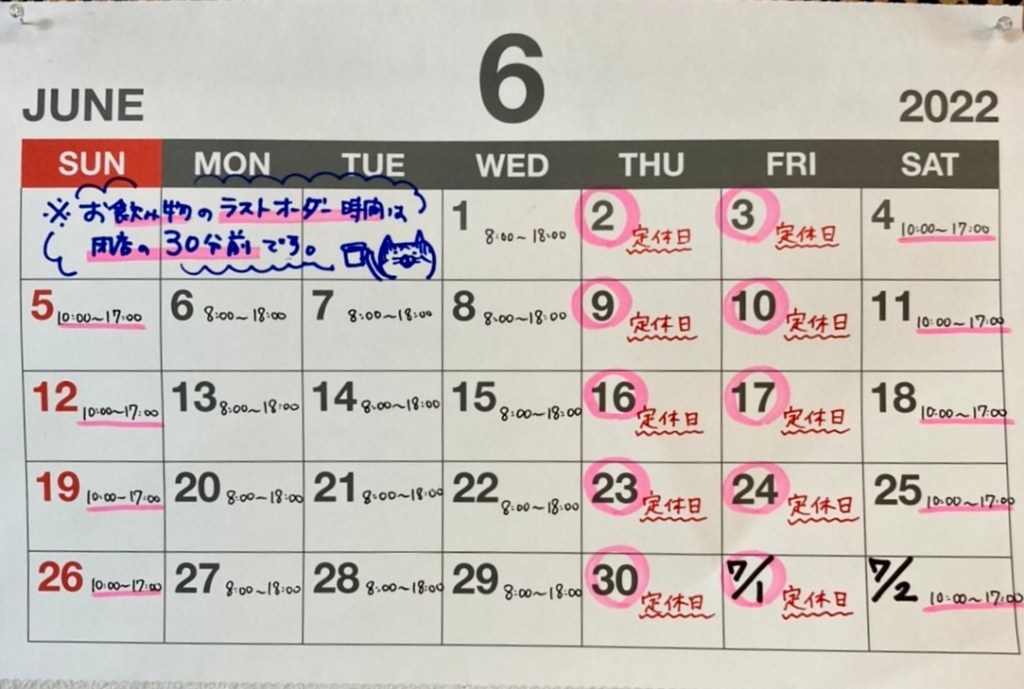 6
JUNE 2022
SUN MON TUE WED THU FRI SAT
※お飲み物のラストオーダー時間は
閉店の30分前です。
1 8:00~18:00 2 定休日 3 定休日 4 10:00~17:00
5 10:00~17:00 6 8:00~18:00 7 8:00~18:00 8 8:00~18:00 9 定休日 10 定休日 11 10:00~17:00
12 10:00~17:00 13 8:00~18:00 14 8:00~18:00 15 8:00~18:00 16 定休日 17 定休日 18 10:00~17:00
19 10:00~17:00 20 8:00~18:00 21 8:00~18:00 22 8:00~18:00 23 定休日 24 定休日 25 10:00~17:00
26 10:00~17:00 27 8:00~18:00 28 8:00~18:00 29 8:00~18:00 30 定休日 7/1 定休日 7/2 10:00~17:00